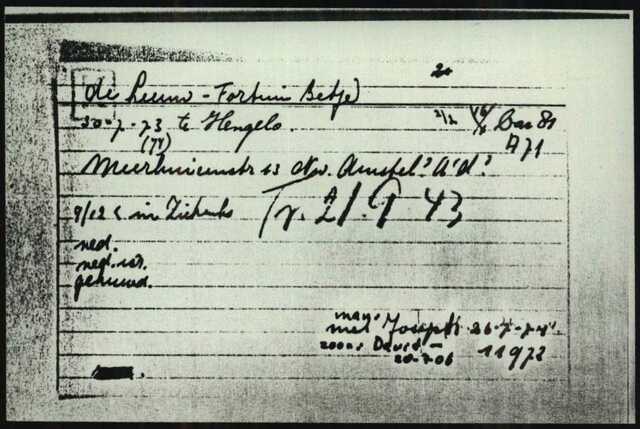 de Leeuw - Fortuin Betje
30-7-73 te Hengelo. 2/2 Bar 81
(TV) A71
13 Nw. Amstel? A'd?
9/12 in Ziekenhs Tr. 21.9 43
ned.
ned. isr.
gehuwd.
man:
met Joseph 26-7-7
zoon: David
20-7-06 11973